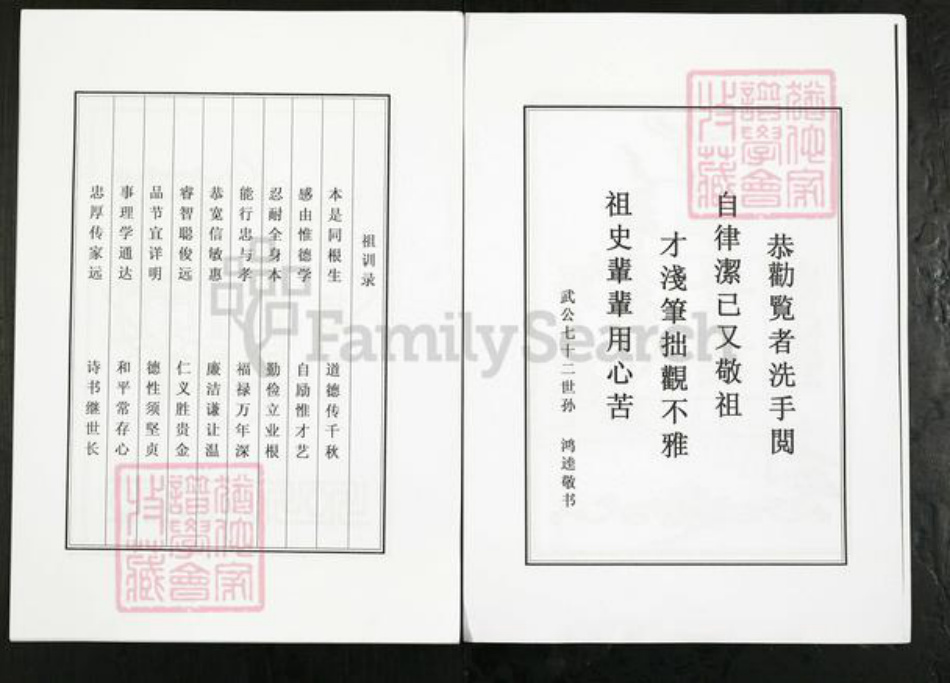 恭勸覧者洗手閲
自律潔已又敬祖
才淺筆拙觀不雅
祖史輩輩用心苦
武公七十二世孙 鸿逵敬书
祖训录
本是同根生 道德传千秋
感由惟德学 自励惟才艺
忍耐全身本 勤俭立业根
能行忠与孝 福禄万年深
恭宽信敏惠 廉洁谦让温
睿智聪俊远 仁义胜贵金
品节宜详明 德性须坚贞
事理学通达 和平常存心
忠厚传家远 诗书继世长
FamilySearch